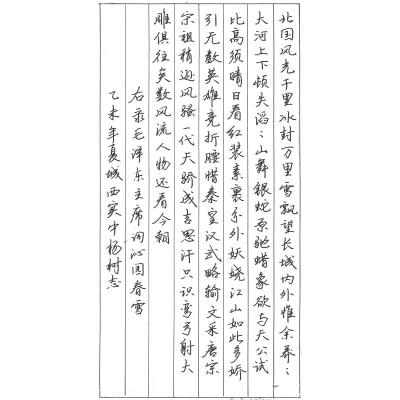 北国风光千里冰封万里雪飘望长城内外惟余莽〻
大河上下顿失滔〻山舞银蛇原驰蜡象欲与天公试
比高须晴日看红装素裹分外妖娆江山如此多娇
引无数英雄竞折腰惜秦皇汉武略输文采唐宗
宗祖稍逊风骚一代天骄成吉思汗只识弯弓射大
雕俱往矣数风流人物还看今朝
右录毛泽东主席词沁园春雪
乙未年夏城西实中杨树志